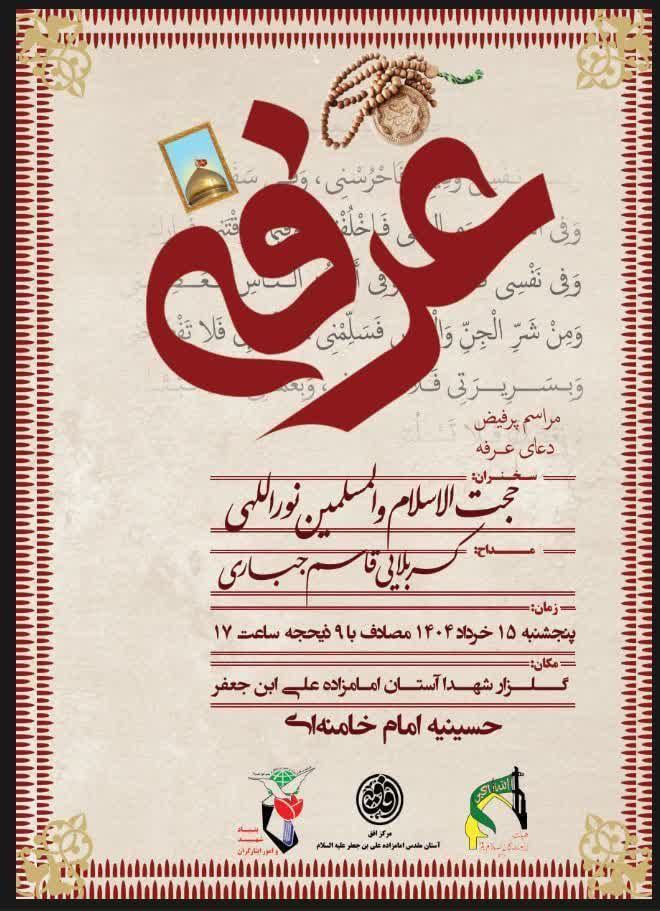 عرفه
وَفِی نَفْسِی
وَمِنْ شَرِّ الْجِنِّ فَسَلِّمْنِی
وَبِسَرِیرَتِی
مراسم پرفیض
دعای عرفه
سخنران:
حجت الاسلام والمسلمین نوراللهی
مداح:
کربلایی قاسم جباری
زمان:
پنجشنبه ۱۵ خرداد ۱۴۰۴ مصادف با ۹ ذیحجه ساعت ۱۷
مکان:
گلزار شهدا آستان امامزاده علی ابن جعفر
حسینیه امام خامنه‌ای
بنیاد
شهید
و امور ایثارگران
مرکز افق
آستان مقدس امامزاده علی بن جعفر علیه السلام
هیئت